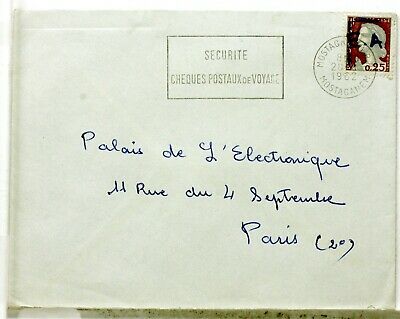 SECURITE
CHEQUES POSTAUX DE VOYAGE
MOSTAGANEM
1962
MOSTAGANEM
EA
0,25
Palais de L'Electronique
11 Rue du 4 Septembre
Paris (2º)